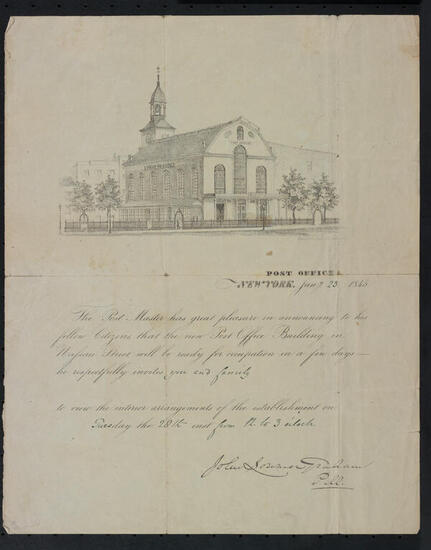 POST OFFICE
NEW YORK, Jan y 23 1845
The Post Master has great pleasure in announcing to his
fellow Citizens that the new Post Office Building in
Nassau Street will be ready for occupation in a few days —
he respectfully invites you and family
to view the interior arrangements of the establishment on
Tuesday the 28th inst from 12 to 3 o'clock
John Lorimer Graham
P.M.